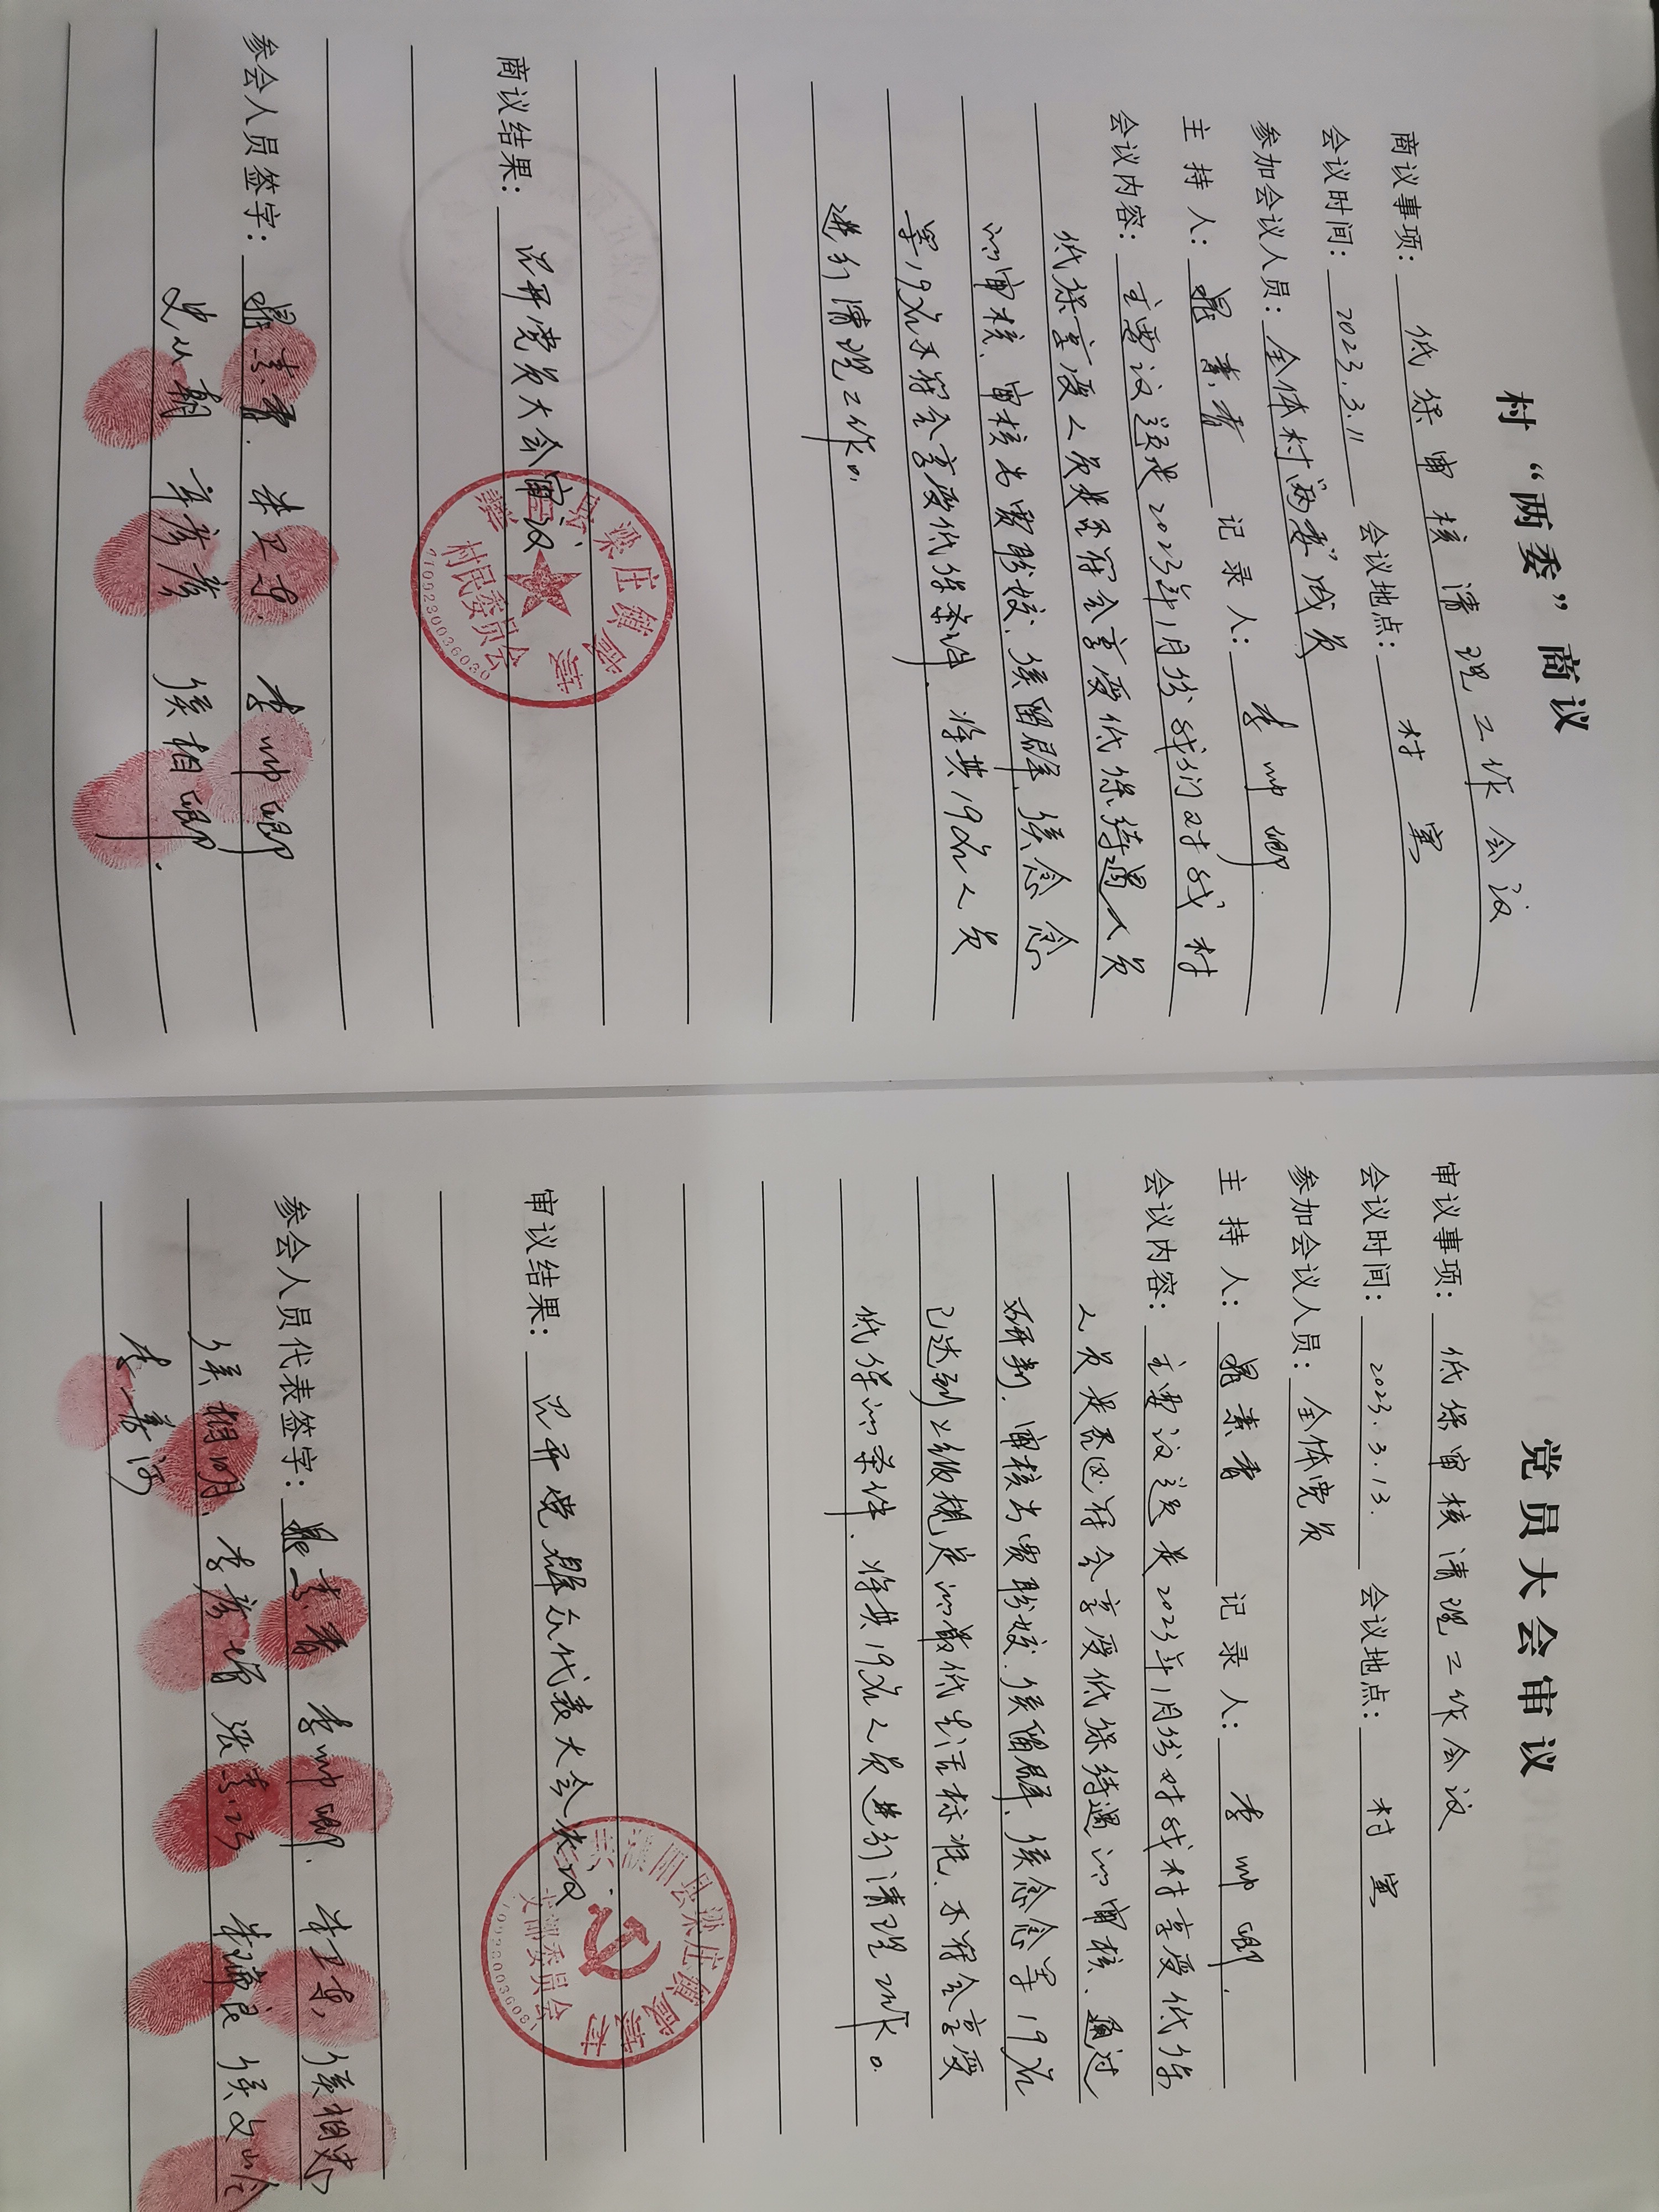 村“两委”商议
商议事项：低保审核清理工作会议
会议时间：2023.3.11 会议地点：村室
参加会议人员：全体村“两委”成员
主持人：晁素香 记录人：李帅卿.
会议内容：主要议题是2023年1月份我们对我村
低保享受人员是否符合享受低保待遇人员
的审核、审核出贾盼姣、侯留群、侯念念
等19名不符合享受低保条件、将共19名人员
进行清理工作。
商议结果：召开党员大会审议
县梁庄镇咸城
村民委员会
参会人员签字：晁素香. 朱卫东. 李帅卿
史从朝 辛彦彦 侯相卿.
党员大会审议
审议事项：低保审核清理工作会议
会议时间：2023.3.13. 会议地点：村室
参加会议人员：全体党员
主持人：晁素香 记录人：李帅卿.
会议内容：主要议题是2023年1月份对我村享受低保
人员是否还符合享受低保待遇的审核、通过
研判、审核出贾盼姣、侯留群、侯念念等19名
已达到上级规定的最低生活标准、不符合享受
低保的条件、将共19名人员进行清理工作。
审议结果：召开党群众代表大会决议
濮阳县梁庄镇咸城村
支部委员会
参会人员代表签字：晁素香 李帅卿. 朱卫东 侯相忠
侯相明、李彦增 张素巧 朱瑞良 侯文岭
李善河